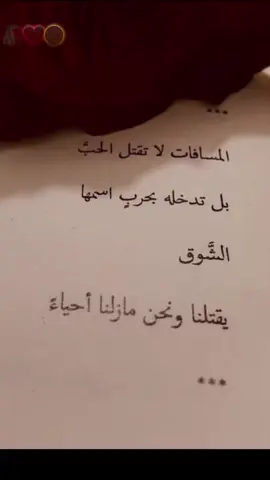 ***
المسافات لا تقتل الحبَّ
بل تدخله بحربٍ اسمها
الشَّوق
يقتلنا ونحن مازلنا أحياءً
***